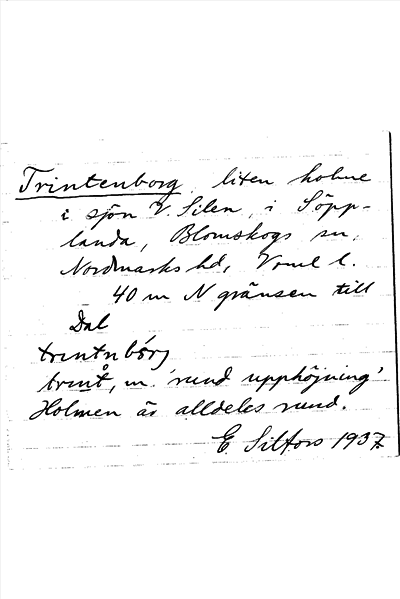 Trintenborg, liten holme
i sjön V. Silen, i Söpp-
landa, Blomskogs sn,
Nordmarks hd, Vrml l.
40 m N gränsen till
Dal
trintnbórj
trint, m. 'rund upphöjning'
Holmen är alldeles rund.
E Silfors 1937.